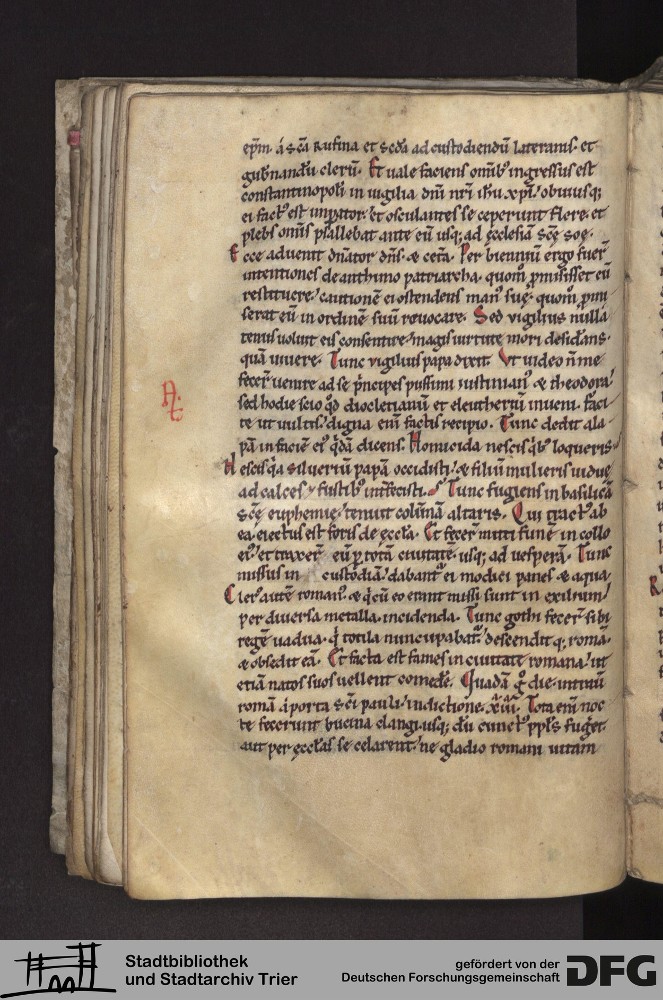 ep̄m. a s̄ca Rufina et sc̄da ad custodiendū lateranis. et
gub̄nandū clerū. Et uale faciens omīb; ingressus est
constantinopoli in uigilia dn̄i nr̄i ih̄u xp̄i. obuiusq;
ei fact᷒ est imp̄ator. et osculantes se ceperunt flere. et
plebs omīs psallebat ante eū usq; ad ęcclesiā sc̄ę soę.
Ecce aduenit dn̄ator dn̄s. & cet̄a. Per biennium ergo fuer̄
intentiones de anthimo patriarcha. quom̄ p̄misisset eū
restituere. cautionē ei ostendens man᷒ suę. quom̄ p̄mi
serat eū in ordinē suū reuocare. Sed uigilius nullā
tenus uoluit eis consentire. magis uirtute mori desid̄ans.
quā uiuere. Tunc vigilius papa dixit. Vt uideo n̄ me
fecer̄ uenire ad se p̄ncipes piissimi iustinian᷒ & theodora.
sed hodie scio q̄d diocletianū et eleutheriū inueni. faci
te ut uultis. digna eni᷒ factis recipio. Tunc dedit ala
pā in faciē ei᷒ q̄dā dicens. Homicida nescis q̄b; loqueris.
Nescis q̄a silueriū papā occidisti. & filiū mulieris uiduę
ad calces & fustib; int̄fecisti. Tunc fugiens in basilicā
sc̄ę euphemię. tenuit colūnā altaris. Qui tract᷒ ab
ea. eiectus est foris de ęccl̄a. Et fecer̄ mitti funē in collo
ei᷒. et traxer̄ eū p totā ciuitatē. usq; ad uesperā. Tunc
missus in custodiā. dabant᷒ ei modici panes & aqua
Cler᷒ autē roman᷒. & q̄ cū eo erant missi sunt in exiliū.
per diuersa metalla. incidenda. Tunc gothi fecer̄ sibi
regē uadua. q̄ totila nuncupabat᷒. descendit q; romā.
& obsedit eā. Et facta est fames in ciuitate romana. ut
etiā natos suos uellent comedē. Quadā ḡ die. intrauit
romā a porta s̄ci pauli. indictione. xiiii. Tota eni᷒ noc
te fecerunt bucina clangi. usq; dū cunct᷒ ppl̄s fuḡet.
aut per ęccl̄as se celarent. ne gladio romani uitam
Stadtbibliothek
und Stadtarchiv Trier
gefördert von der
Deutschen Forschungsgemeinschaft
DFG